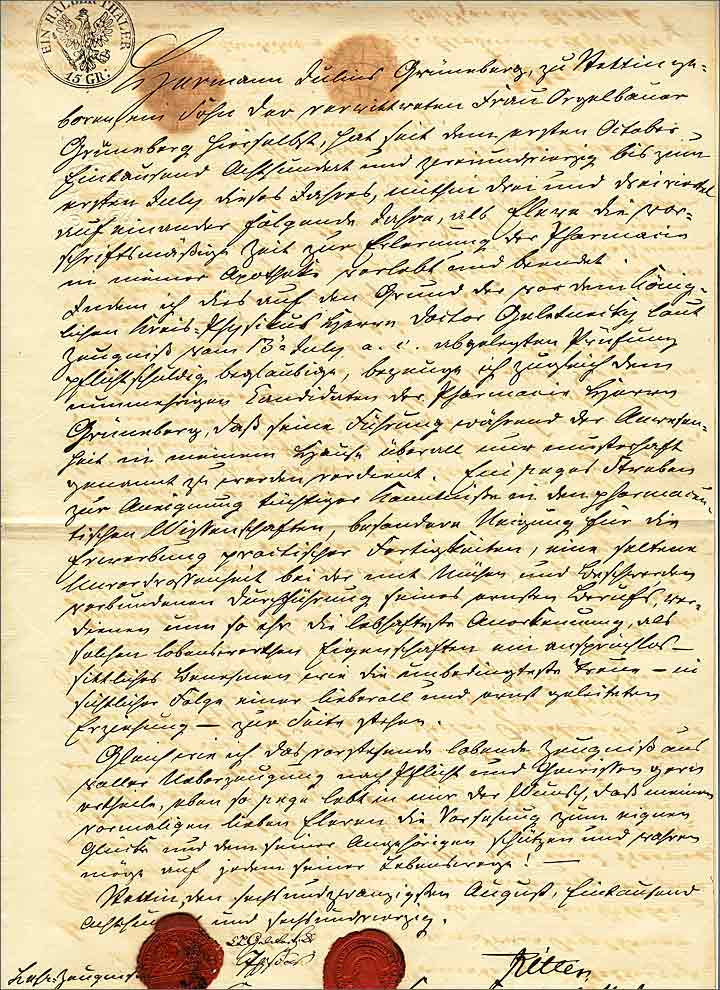 EIN HALBER THALER
15 GR.
Hermann Julius Grüneberg, zu Stettin ge-
borenem Sohn der verwittweten Frau Orgelbauer
Grüneberg hierselbst, hat seit dem ersten October
Eintausend Achthundert und zweiundvierzig bis zum
ersten July dieses Jahres, mithin drei und dreiviertel
auf einander folgende Jahre, als Eleve die vor-
schriftsmäßige Zeit zur Erlernung der Pharmacie
in meiner Apotheke verlebt und beendet.
Indem ich dies auf den Grund der vor dem König-
lichen Kreis-Physikus Herrn Doctor Geletnecky laut
Zeugniß vom 13t July a. c. abgelegten Prüfung
pflichtschuldig beglaubige, bezeuge ich zugleich dem
nunmehrigen Kandidaten der Pharmacie Herrn
Grüneberg, daß seine Führung während der Anwesen-
heit in meinem Hause überall nur musterhaft
genannt zu werden verdient. Ein reges Streben
zur Aneignung tüchtiger Kenntniße in den pharmaceu-
tischen Wissenschaften, besondere Neigung für die
Erwerbung practischer Fertigkeiten, eine seltene
Unverdrossenheit bei der mit Mühen und Beschwerden
verbundenen Durchführung seines ernsten Berufs, ver-
dienen um so ehr die lebhafteste Anerkennung, als
solchen lobenswerthen Eigenschaften ein anspruchlos-
sittliches Benehmen wie die unbedingteste Treue – in
sichtlicher Folge einer liebevoll und ernst geleiteten
Erziehung – zur Seite stehen.
Gleich wie ich das vorstehende lobende Zeugniß aus
voller Ueberzeugung nach Pflicht und Gewissen gern
ertheile, eben so rege lebt in mir der Wunsch, daß meinen
vormaligen lieben Eleven die Vorsehung zum eignen
Glücke und dem seiner Angehörigen schützen und wahren
möge auf jedem seiner Lebenswege! —
Stettin, den sechsundzwanzigsten August, Eintausend
Achthundert und sechsundvierzig.
Ritter
Lehr-Zeugniß